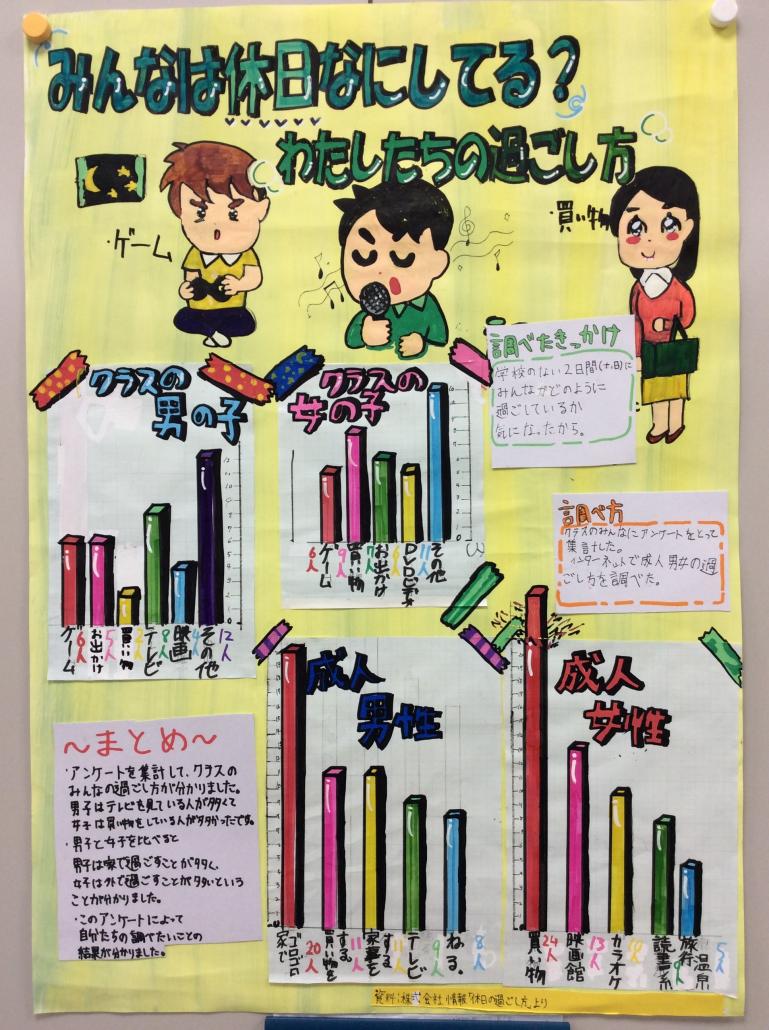 みんなは休日なにしてる?
わたしたちの過ごし方
・ゲーム
・買い物
調べたきっかけ
学校のない2日間(土・日)に
みんながどのように
過ごしているか
気になったから。
クラスの
男の子
ゲーム 6人
お出かけ 5人
買い物
テレビ 8人
映画
その他 12人
クラスの
女の子
ゲーム 6人
買い物 9人
お出かけ 7人
DVD
その他 11人
調べ方
クラスのみんなにアンケートをとって
集計した。
インターネットで成人男女の過
ごし方を調べた。
成人
男性
家でゴロゴロ 20人
買い物をする。 11人
家事をする 11人
テレビ 9人
ねる。 8人
成人
女性
買い物 24人
映画館 13人
カラオケ
読書系 9人
旅行温泉 5人
~まとめ~
・アンケートを集計して、クラスの
みんなの過ごし方が分かりました。
男子はテレビを見ている人が多くて
女子は買い物をしている人が多かったです。
・男子と女子を比べると
男子は家で過ごすことが多く、
女子は外で過ごすことが多いという
ことが分かりました。
・このアンケートによって
自分たちの調べたいことの
結果が分かりました。
資料:株式会社 情報「休日の過ごし方」より